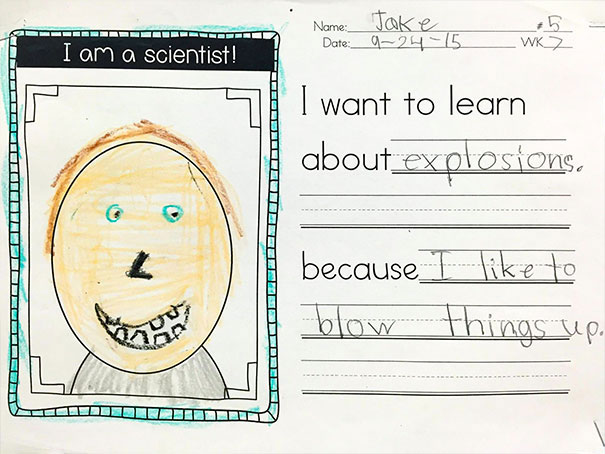 I am a scientist!
Name: Jake #5
Date: 9-24-15 WK 7
I want to learn
about explosions.
because I like to
blow things up.